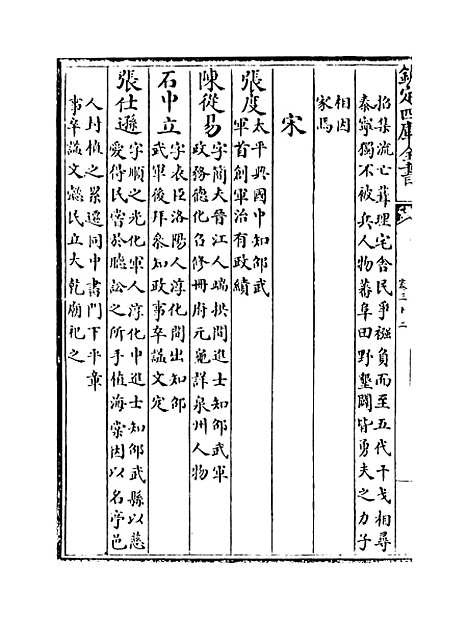 欽定四庫全書
卷三十二
招集流亡葺理宅舍民爭襁負而至五代干戈相尋
泰寧獨不被兵人物蕃阜田野墾闢皆勇夫之力子
相因
家焉
宋
張度太平興國中知邵武
軍首創軍治有政績
陳從易字簡夫晉江人端拱間進士知邵武軍
政務德化召修冊府元龜詳泉州人物
石中立字表臣洛陽人淳化間出知邵
武軍後拜參知政事卒諡文定
張仕遜字順之光化軍人淳化中進士知邵武縣以慈
愛得民嘗於聽訟之所手植海棠因以名亭邑
人封植之累遷同中書門下平章
事卒諡文懿民立大乾廟祀之